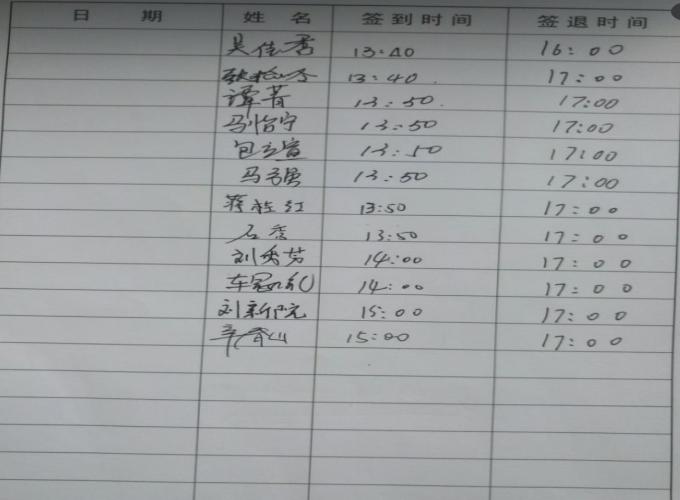 日 期 姓 名 签到时间 签退时间
吴佳 13:40 16:00
13:40 17:00
谭菁 13:50 17:00
马怡宁 13:50 17:00
包立 13:50 17:00
马勇 13:50 17:00
蒋桂红 13:50 17:00
石香 13:50 17:00
刘秀芳 14:00 17:00
车 14:00 17:00
刘新院 15:00 17:00
15:00 17:00